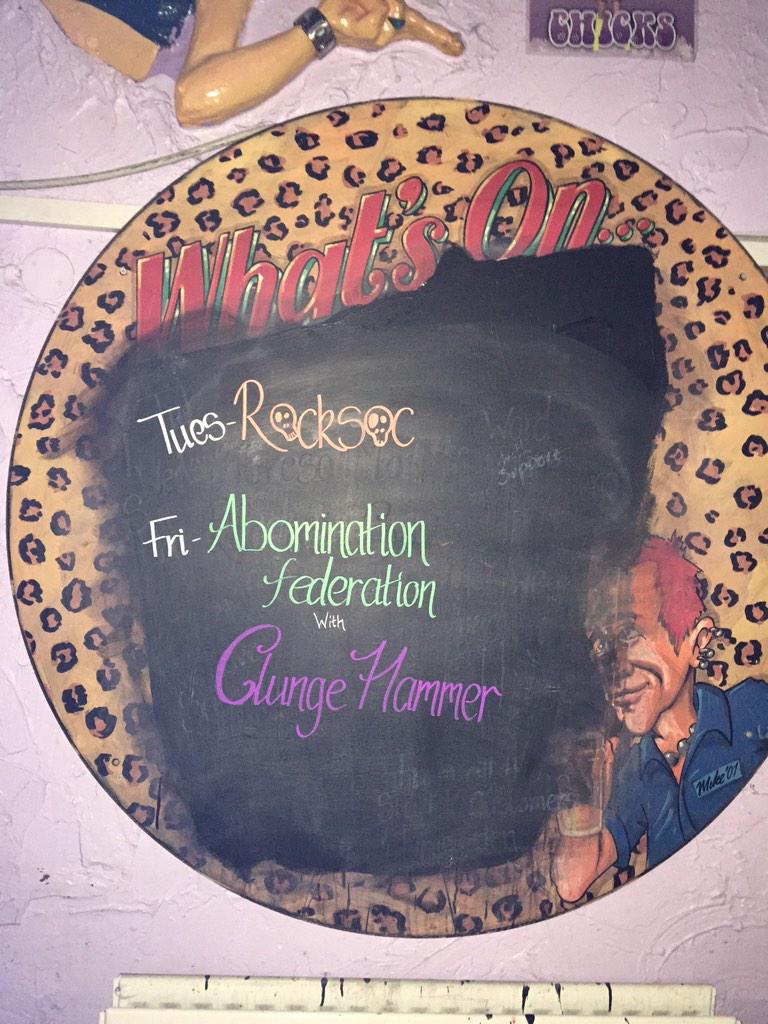 CHICKS
What's On...
Tues-Rocksoc
Word
with
Support
Fri-Abomination
federation
With
Clunge Hammer
Mike '01